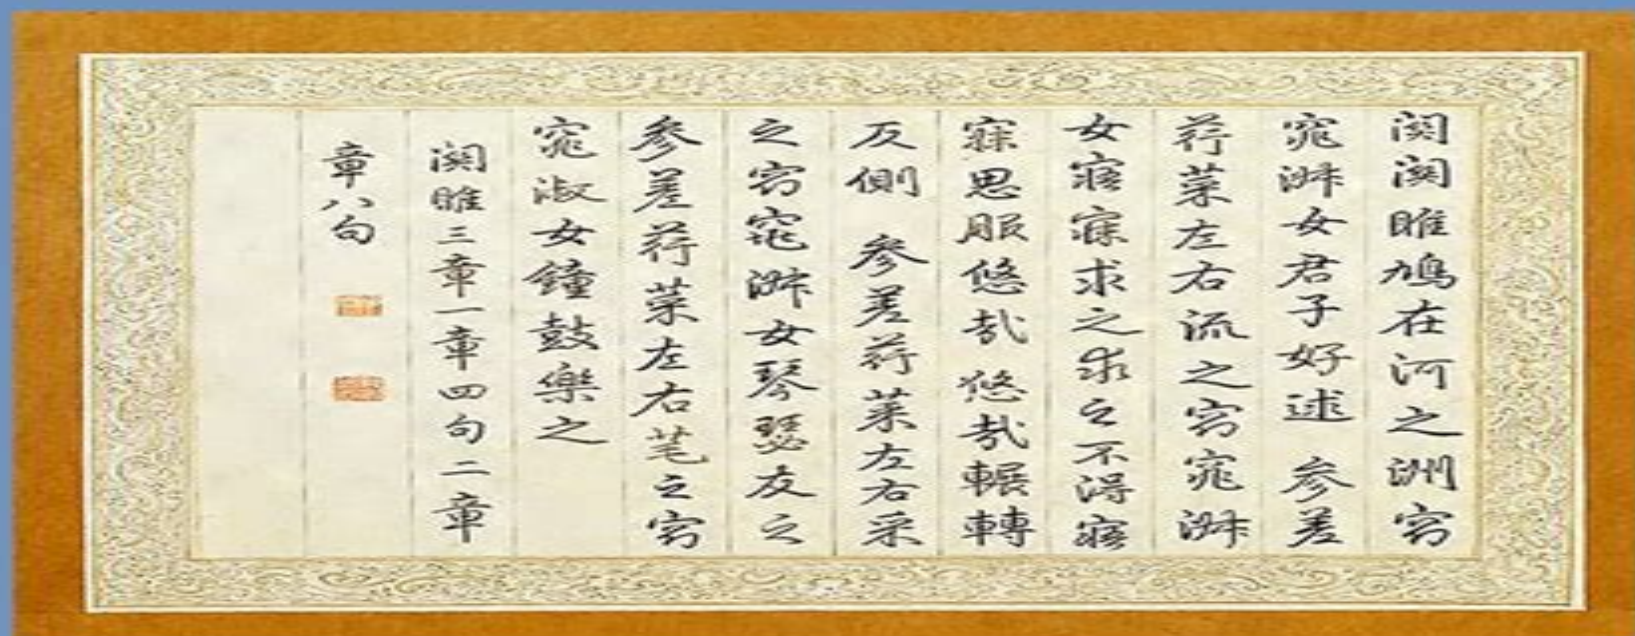 関関雎鳩在河之洲窈
窕淑女君子好逑 參差
荇菜左右流之窈窕淑
女寤寐求之求之不得寤
寐思服悠哉悠哉輾轉
反側 參差荇菜左右采
之窈窕淑女琴瑟友之
參差荇菜左右芼之窈
窕淑女鐘鼓樂之
関雎三章一章四句二章
章八句